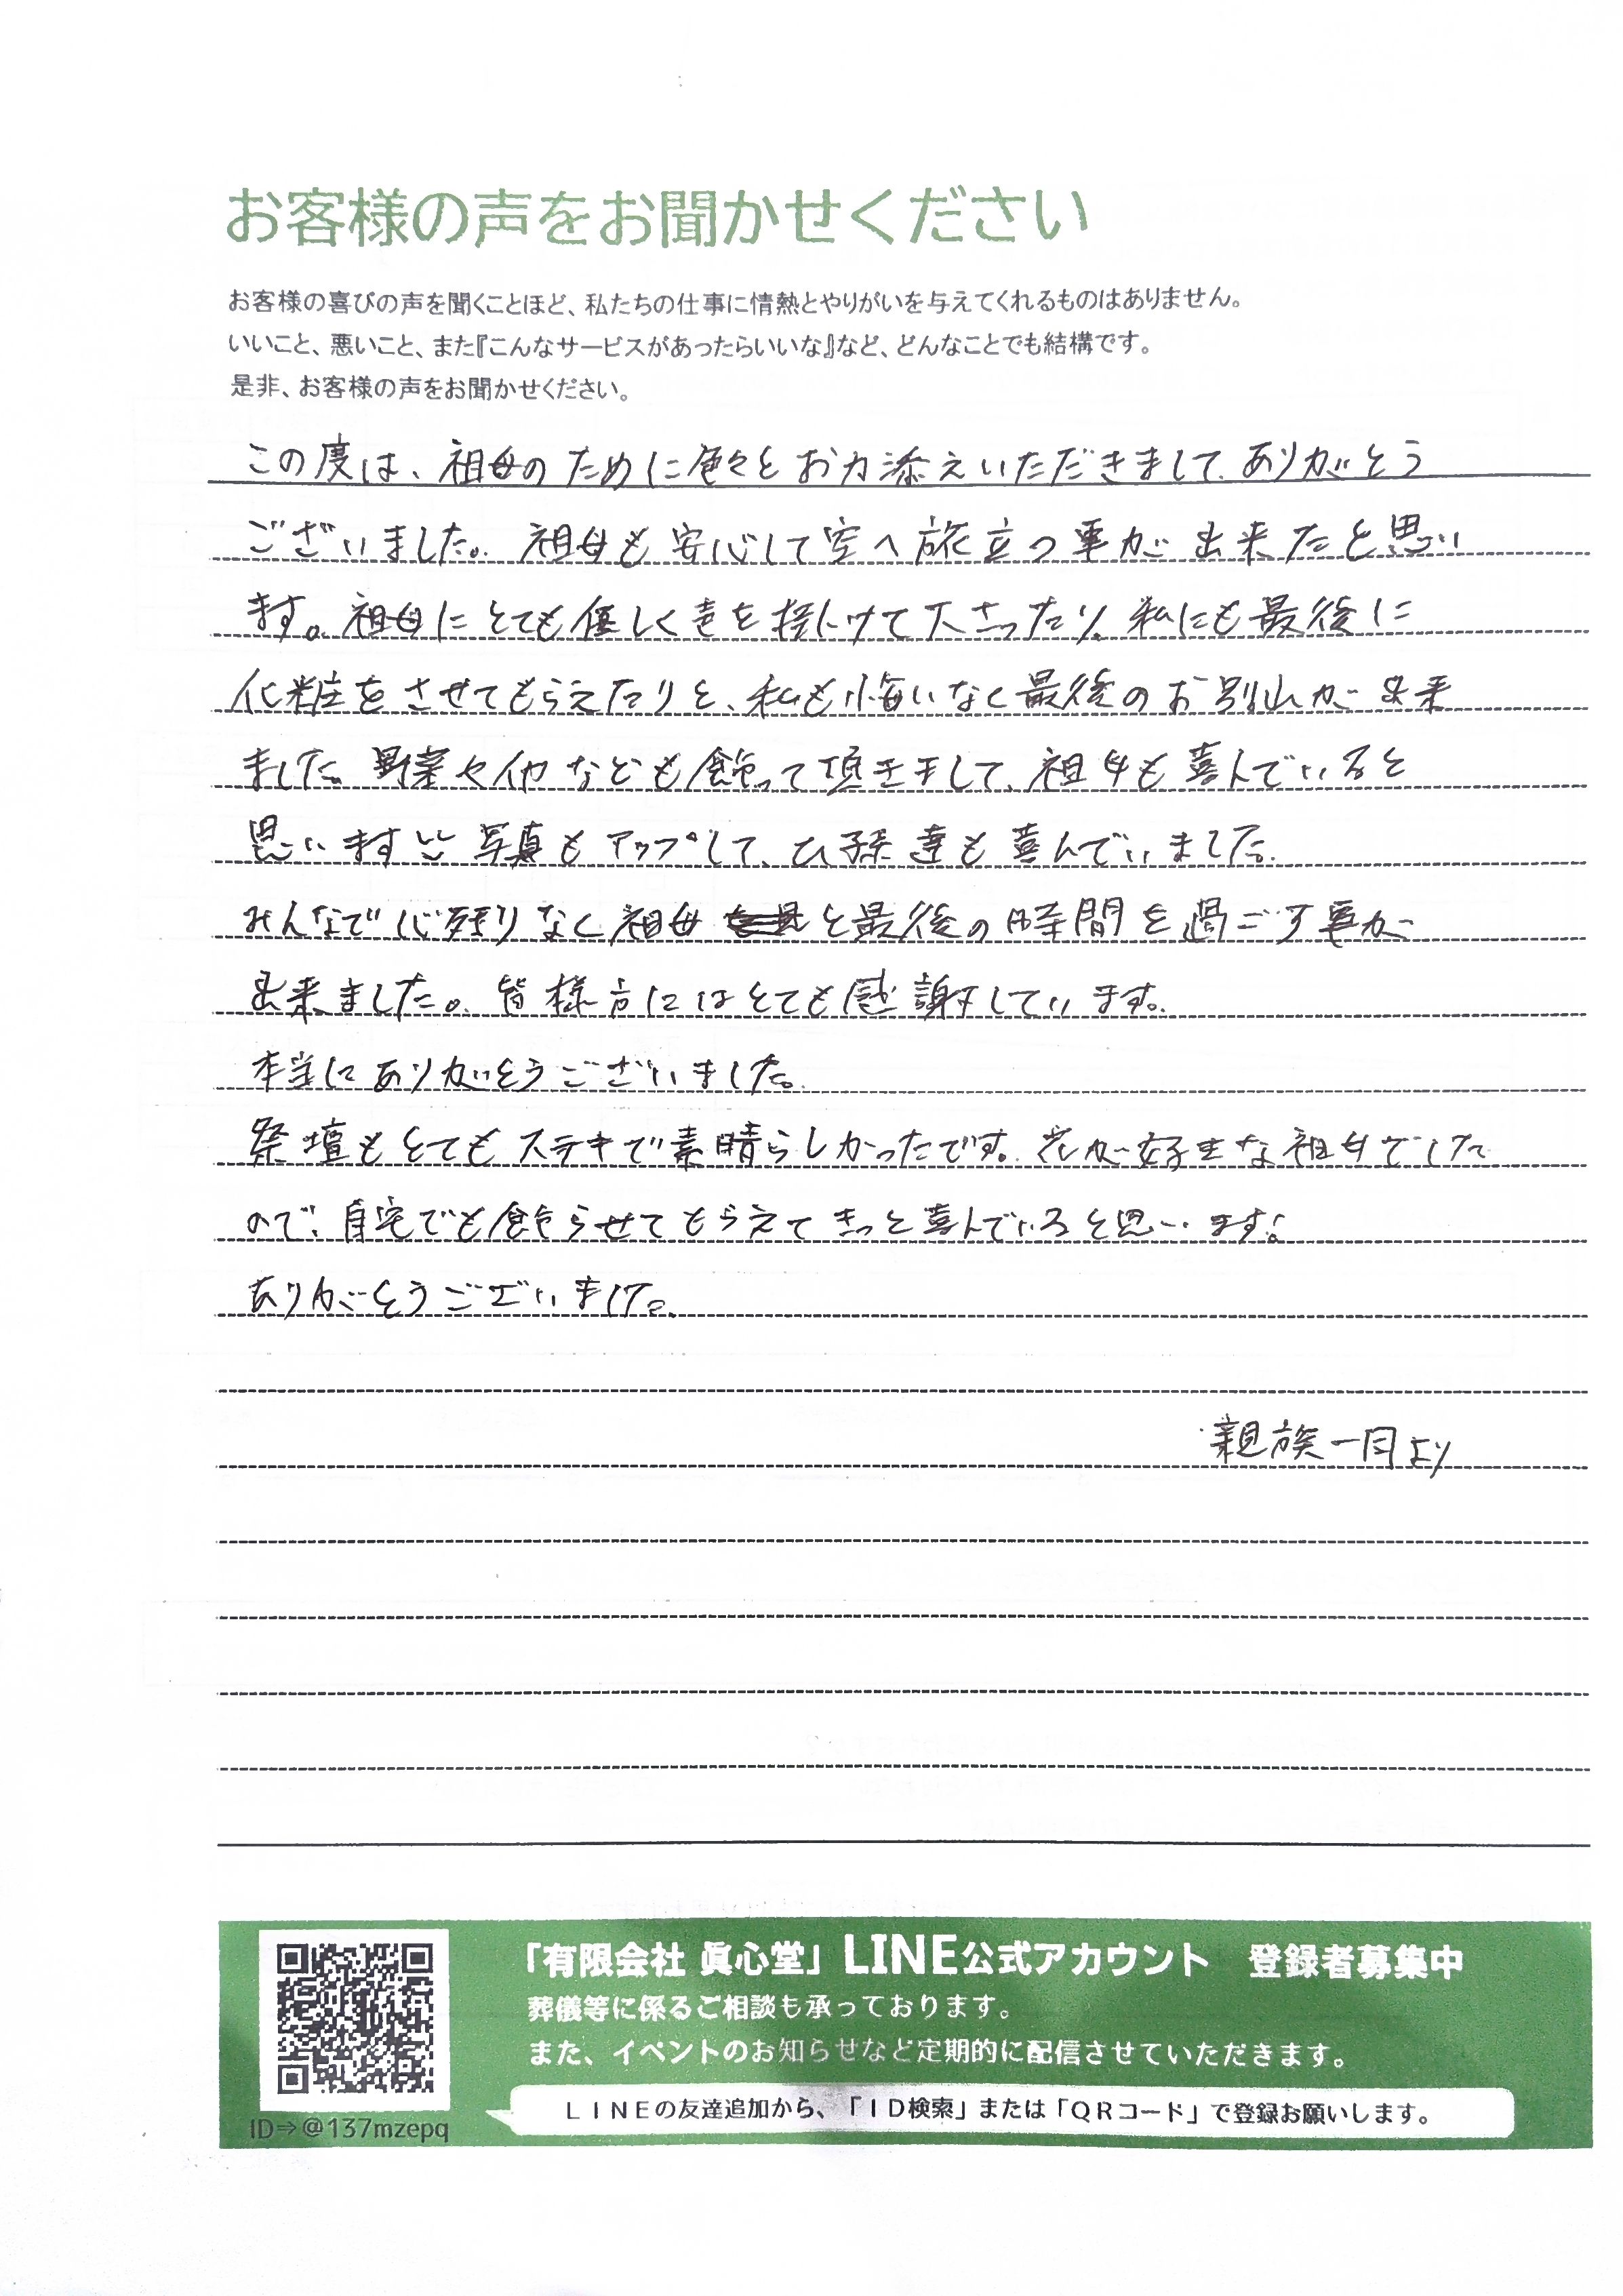 お客様の声をお聞かせください
お客様の喜びの声を聞くことほど、私たちの仕事に情熱とやりがいを与えてくれるものはありません。
いいこと、悪いこと、また『こんなサービスがあったらいいな』など、どんなことでも結構です。
是非、お客様の声をお聞かせください。
この度は、祖母のために色々とお力添えいただきまして、ありがとう
ございました。祖母も安心して空へ旅立つ事が出来たと思い
ます。祖母にとても優しく声を掛けて下さったり、私にも最後に
化粧をさせてもらえたりと、私も悔いなく最後のお別れが出来
ました。野菜や など も飾って頂きまして、祖母も喜んでいると
思います 写真もアップして、ひ孫達も喜んでいました。
みんなで心残りなく祖母と最後の時間を過ごす事が
出来ました。皆様方にはとても感謝しています。
本当にありがとうございました。
祭壇もとてもステキで素晴らしかったです。花が好きな祖母でした
ので、自宅でも飾らせてもらえてきっと喜んでいると思います。
ありがとうございました。
親族一同より
「有限会社 眞心堂」LINE公式アカウント 登録者募集中
葬儀等に係るご相談も承っております。
また、イベントのお知らせなど定期的に配信させていただきます。
LINEの友達追加から、「ID検索」または「QRコード」で登録お願いします。
ID⇒@137mzepq